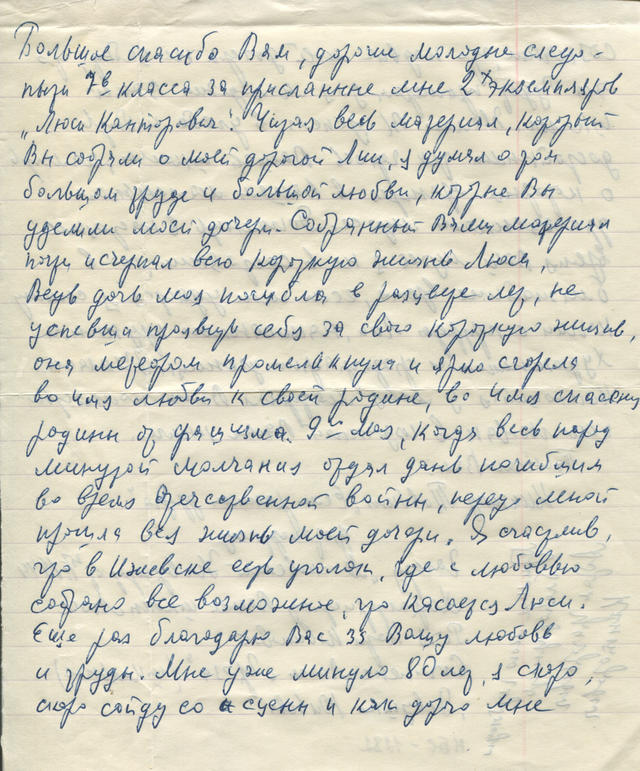 Большое спасибо Вам, дорогие молодые следо-
пыты 7в класса за присланные мне 2х экземпляров
„Люси Канторович". Читая весь материал, который
Вы собрали о моей дорогой Люси, я думал о том
большом труде и большой любви, которые Вы
уделили моей дочери. Собранный Вами материал
почти исчерпал всю короткую жизнь Люси,
Ведь дочь моя погибла в расцвете лет, не
успевши проявить себя за свою короткую жизнь,
она метеором промелькнула и ярко сгорела
во имя любви к своей родине, во имя спасения
родины от фашизма. 9го мая, когда весь народ
минутой молчания отдал дань погибшим
во время Отечественной войны, передо мной
прошла вся жизнь моей дочери. Я счастлив,
что в Ижевске есть уголок, где с любовью
собрано все возможное, что касается Люси.
Еще раз благодарю Вас за Вашу любовь
и труды. Мне уже минуло 80 лет, я скоро,
скоро сойду со сцены и как дорого мне